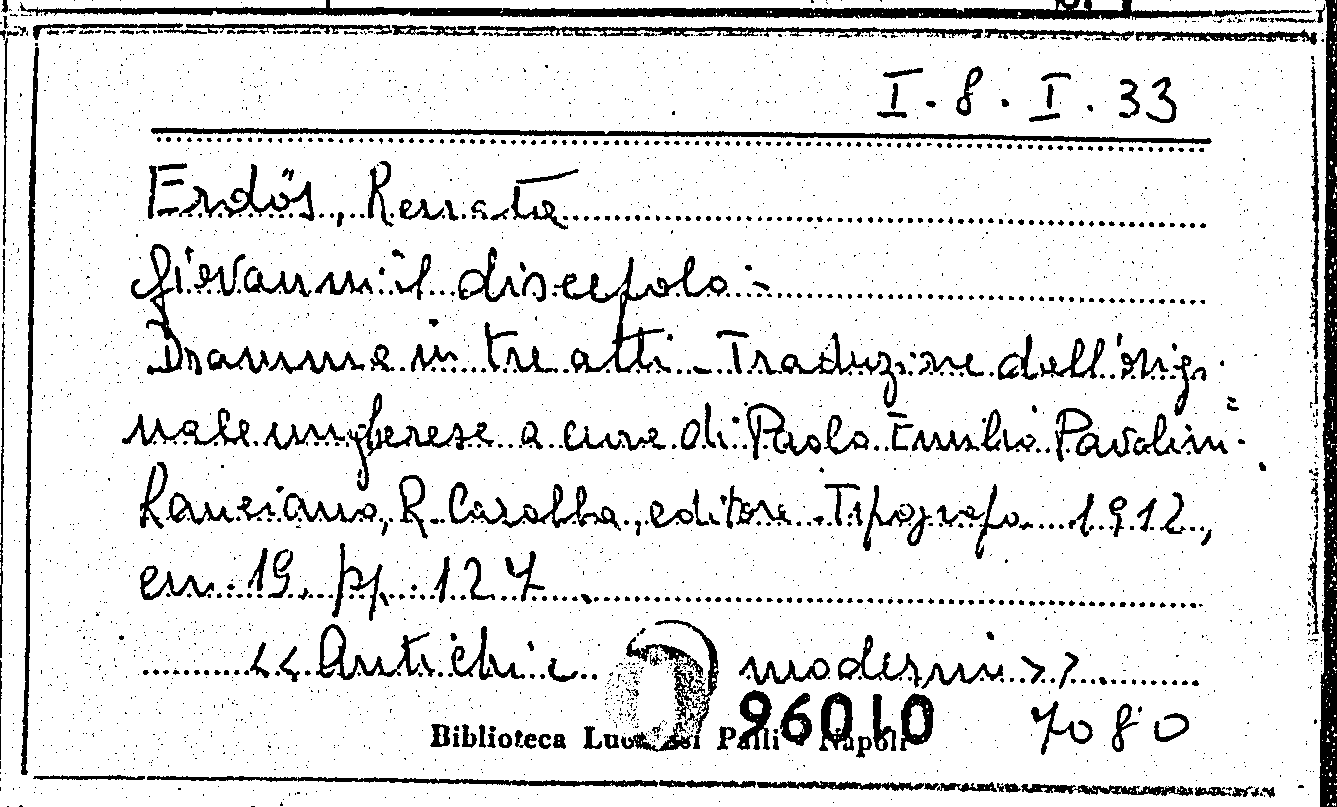 I. 8. I. 33
Erdös, Renata
Giovanni il discepolo -
Dramma in tre atti - Traduzione dell'origi-
nale ungherese a cura di Paolo Emilio Pavolini -
Lanciano, R. Carabba, editore Tipografo 1912,
cm. 19, pp. 127
<<Antichi e moderni>>
96010 7080
Biblioteca Lucchesi Palli - Napoli